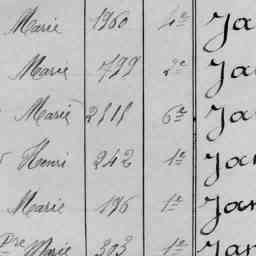 Marie 1960 4e Ja
Marie 799 2e Ja
Marie 2515 6e Ja
Henri 242 1e Jan
Marie 196 1e Jan
Pre Marie 303 1e Jan